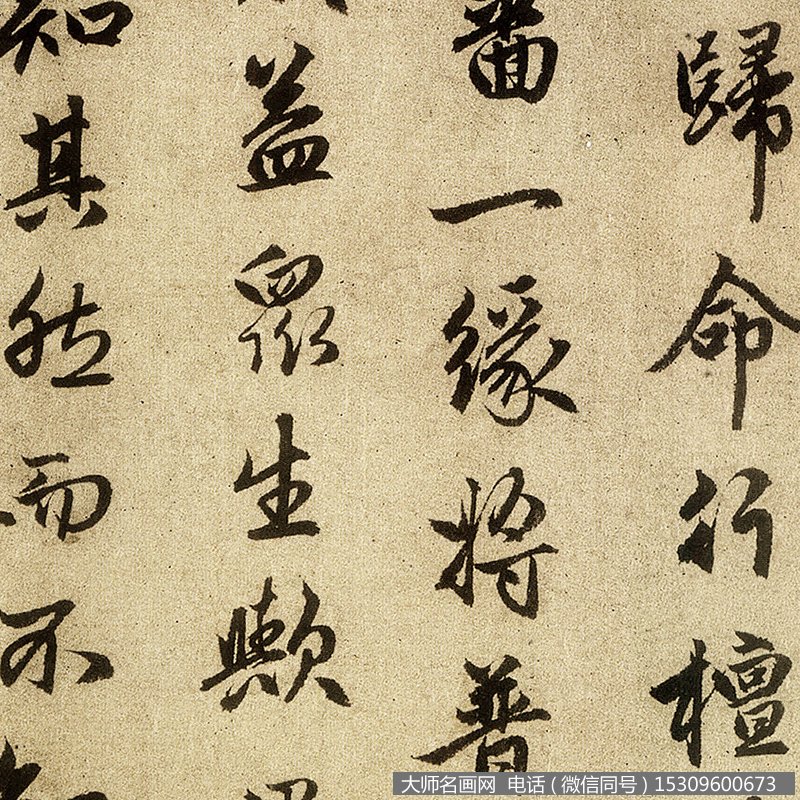 歸命行檀
番一緣將普
益眾生歟
知其然而不
大师名画网 电话（微信同号）15309600673